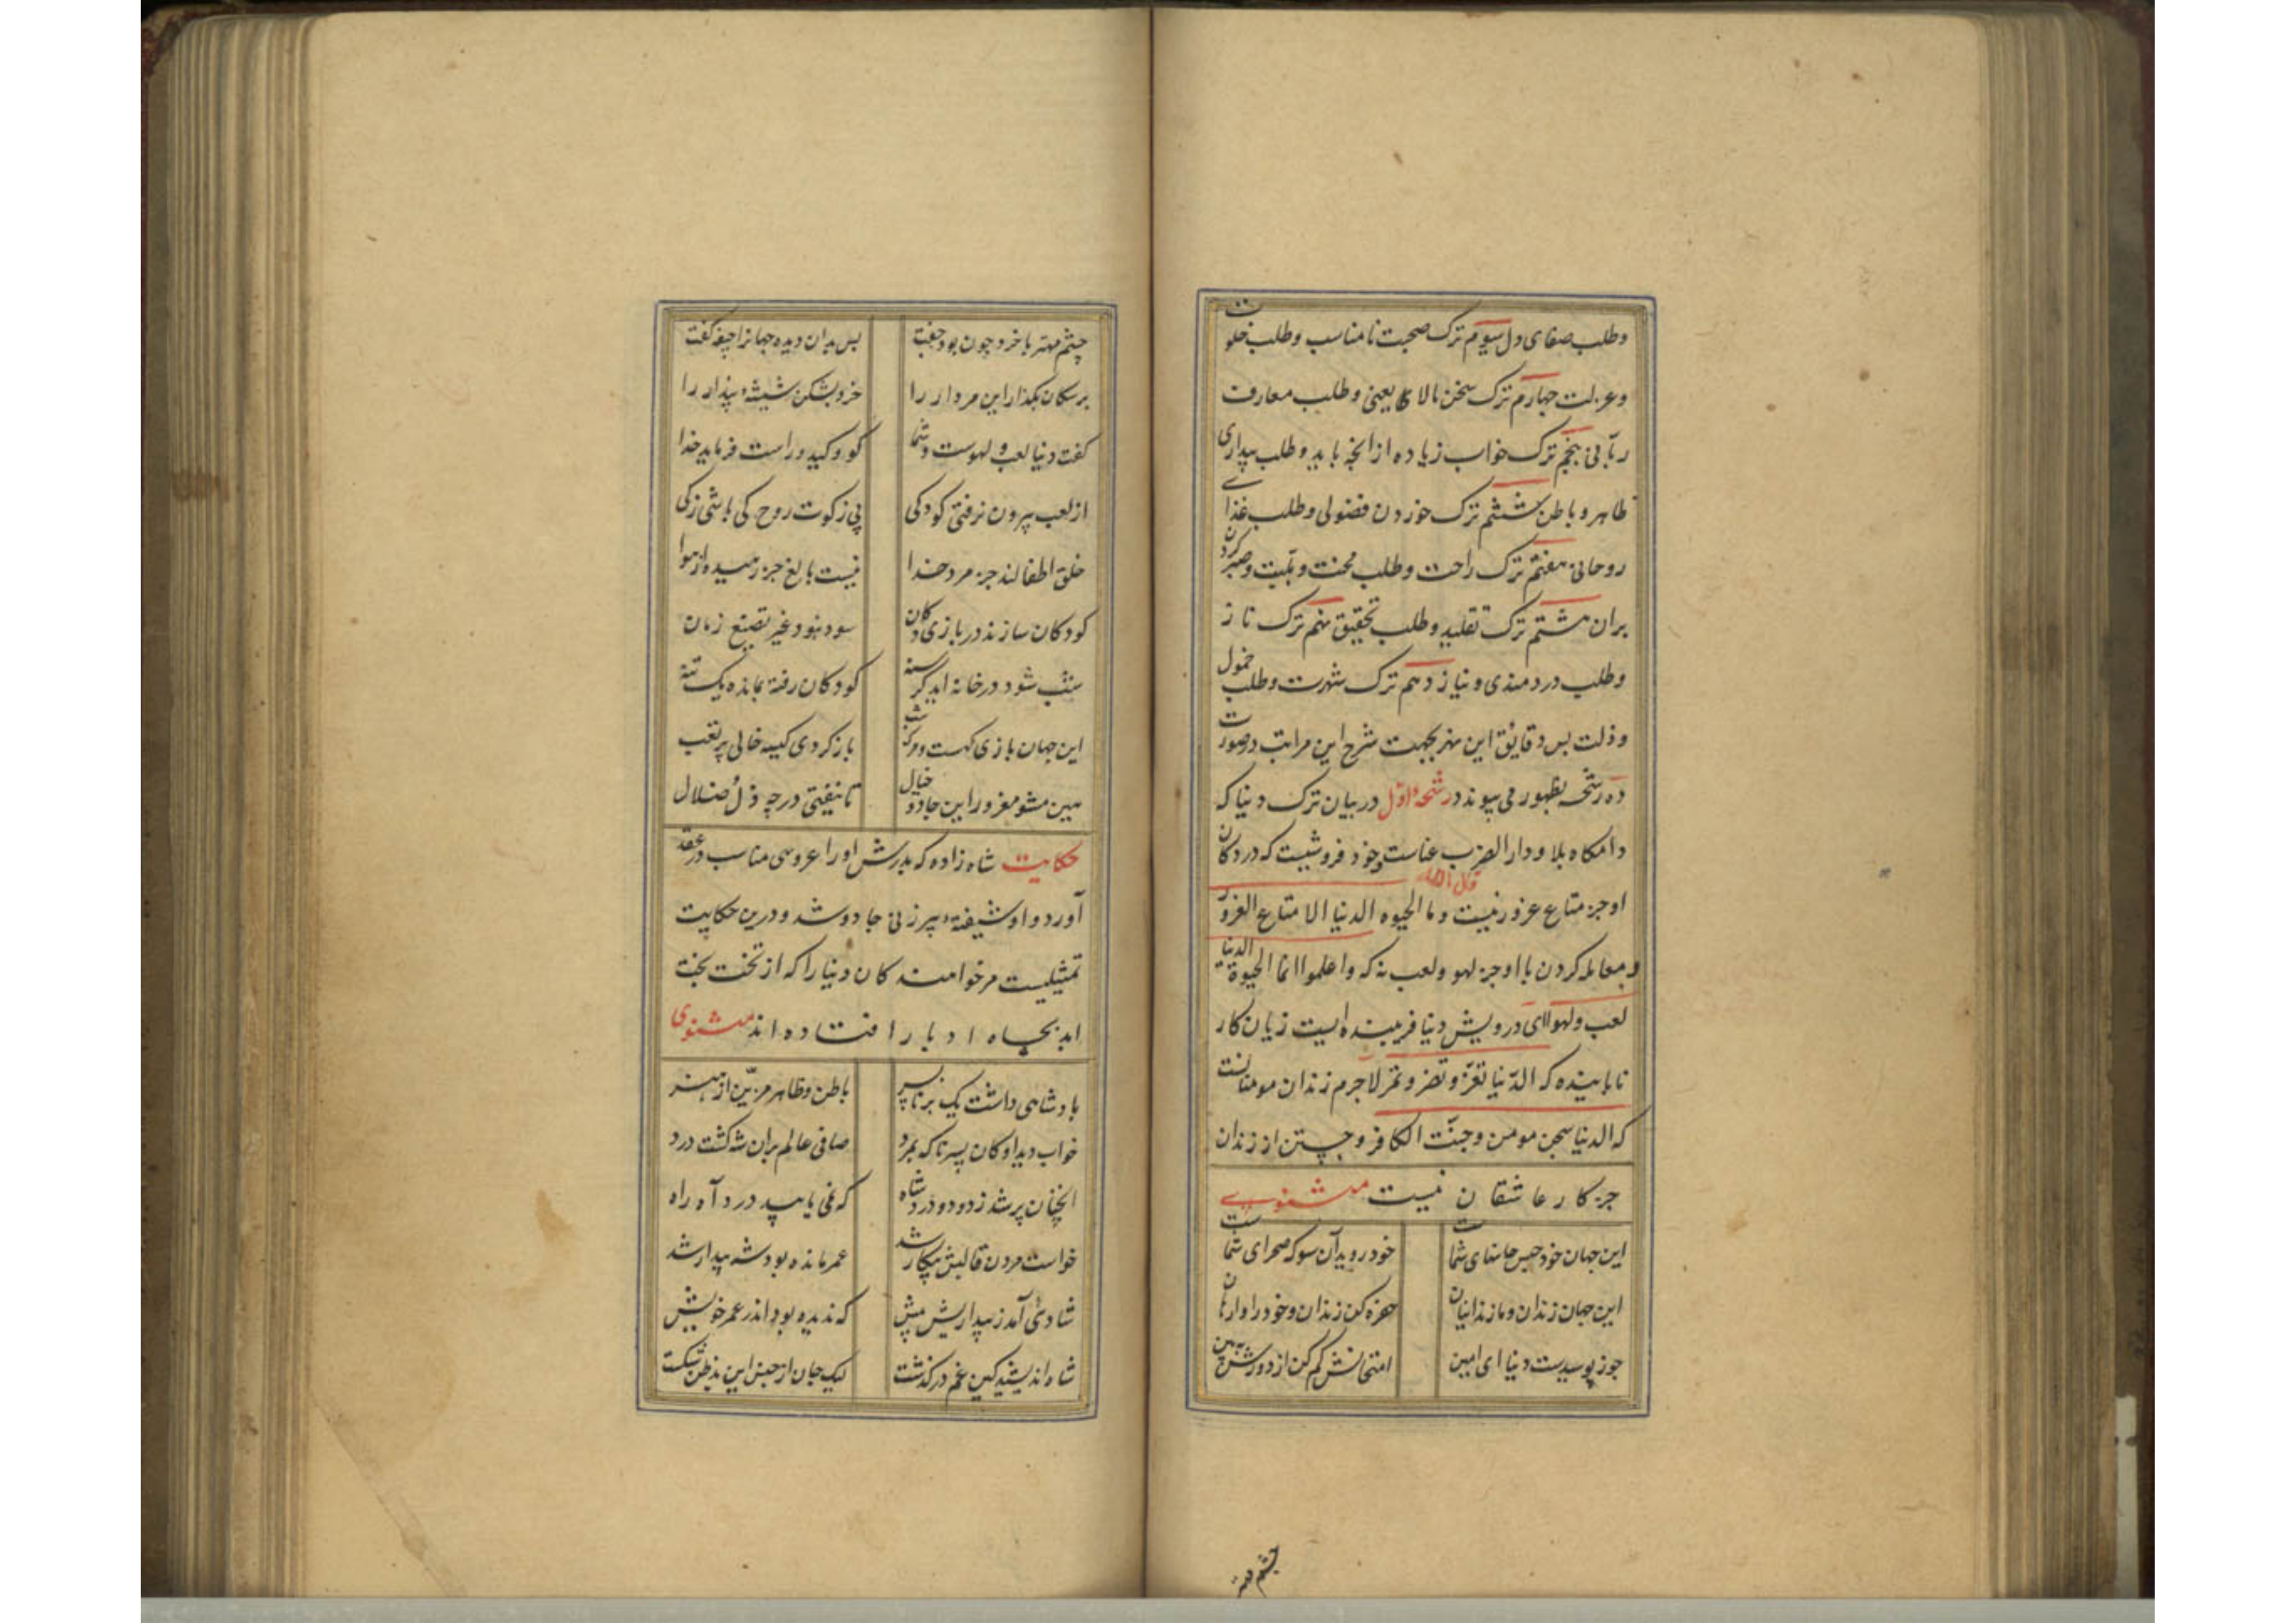 وطلب صفای دل سیوم ترک صحبت نامناسب وطلب خلوت
وعزلت چهارم ترک سخن مالا یعنی وطلب معارف
ربانی پنجم ترک خواب زیاده از انچه باید وطلب بیداری
ظاهر و باطن ششم ترک خوردن فضولی وطلب غذای
روحانی هفتم ترک راحت وطلب محنت و بلیت وصبر کردن
بران هشتم ترک تقلید وطلب تحقیق نهم ترک ناز
وطلب دردمندی و نیاز دهم ترک شهرت وطلب خمول
وذلت بس دقایق این نهر بجهت شرح این مراتب درصورت
ده رشحه بظهور می پیوندد رشحهٔ اول در بیان ترک دنیا که
دامکاه بلا ودار الضرب عناست وخود فروشیست که در دکان
او جز متاع غرور نیست قال الله وما الحیوه الدنیا الا متاع الغرور
ومعامله کردن با او جز لهو ولعب نه که واعلموا انما الحیوة الدنیا
لعب ولهو الای درویش دنیا فریبنده ایست زیان کار
ناپاینده که الدنیا تغر وتضر وتمر لاجرم زندان مومنانست
که الدنیا سجن مومن وجنت الکافر وجستن از زندان
جز کار عاشقان نیست مثنوی
این جهان خود حبس جانهای شماست خود روید آن سو که صحرای شماست
این جهان زندان وما زندانیان حفره کن زندان وخود را وارهان
جوز پوسیدست دنیا ای امین امتحانش کم کن از دورش ببین
چشم مهتر
چشم مهتر با خرد چون بود جفت بس بدان دیده جهانرا جیفه کفت
بر سکان بکذار این مردار را خرد بشکن شیشهٔ پندار را
کفت دنیا لعب و لهوست وشما کودکید وراست فرماید خدا
از لعب بیرون نرفتی کودکی بی زکوت روح کی باشی زکی
خلق اطفالند جز مرد خدا نیست بالغ جز رهیده از هوا
کودکان سازند در بازی دکان سود نبود غیر تضییع زمان
شب شود در خانه اید کرسنه کودکان رفته بمانده یک تنه
این جهان بازی کهست ومرک شب باز کردی کیسه خالی پر تعب
هین مشو مغرور این جادو خیال تا نیفتی در چه ذل ضلال
حکایت شاه زاده که پدرش اورا عروسی مناسب در عقد
آورد و او شیفتهٔ پیر زنی جادو شد و درین حکایت
تمثیلیست مر خواهندکان دنیا را که از تخت بخت
ابد بچاه ادبار افتاده اند مثنوی
بادشاهی داشت یک برنا پسر باطن وظاهر مزین از هنر
خواب دید او کان پسر ناکه بمرد صافی عالم بران شه کشت درد
انچنان پر شد ز دود و درد شاه که نمی یابید درد آه راه
خواست مردن قالبش بیکار شد عمر مانده بود شه بیدار شد
شادیٔ آمد ز بیداریش پیش که ندیده بود اندر عمر خویش
شاه اندیشید کین غم در کذشت لیک جان از جنس این بدظن کشت